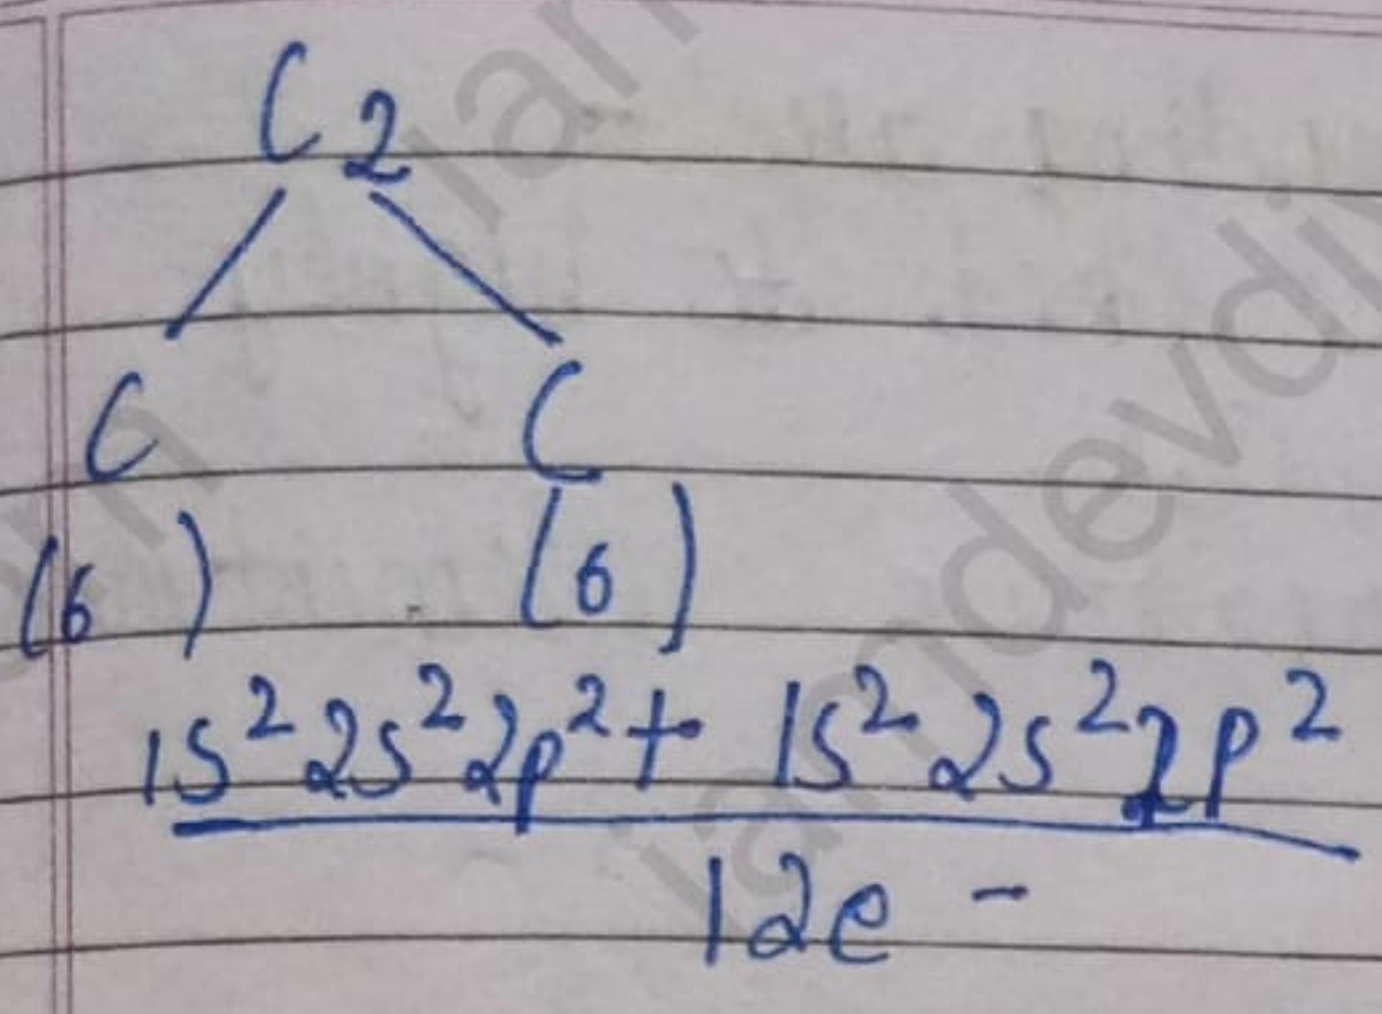 C2
C C
(6) (6)
1s² 2s² 2p² + 1s² 2s² 2p²
12e -